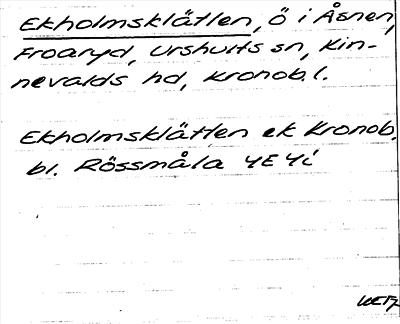 Ekholmsklätten, ö i Åsnen,
Froaryd, Urshults sn, Kin-
nevalds hd, Kronob. l.
Ekholmsklätten ek Kronob.
bl. Rössmåla 4E 4i